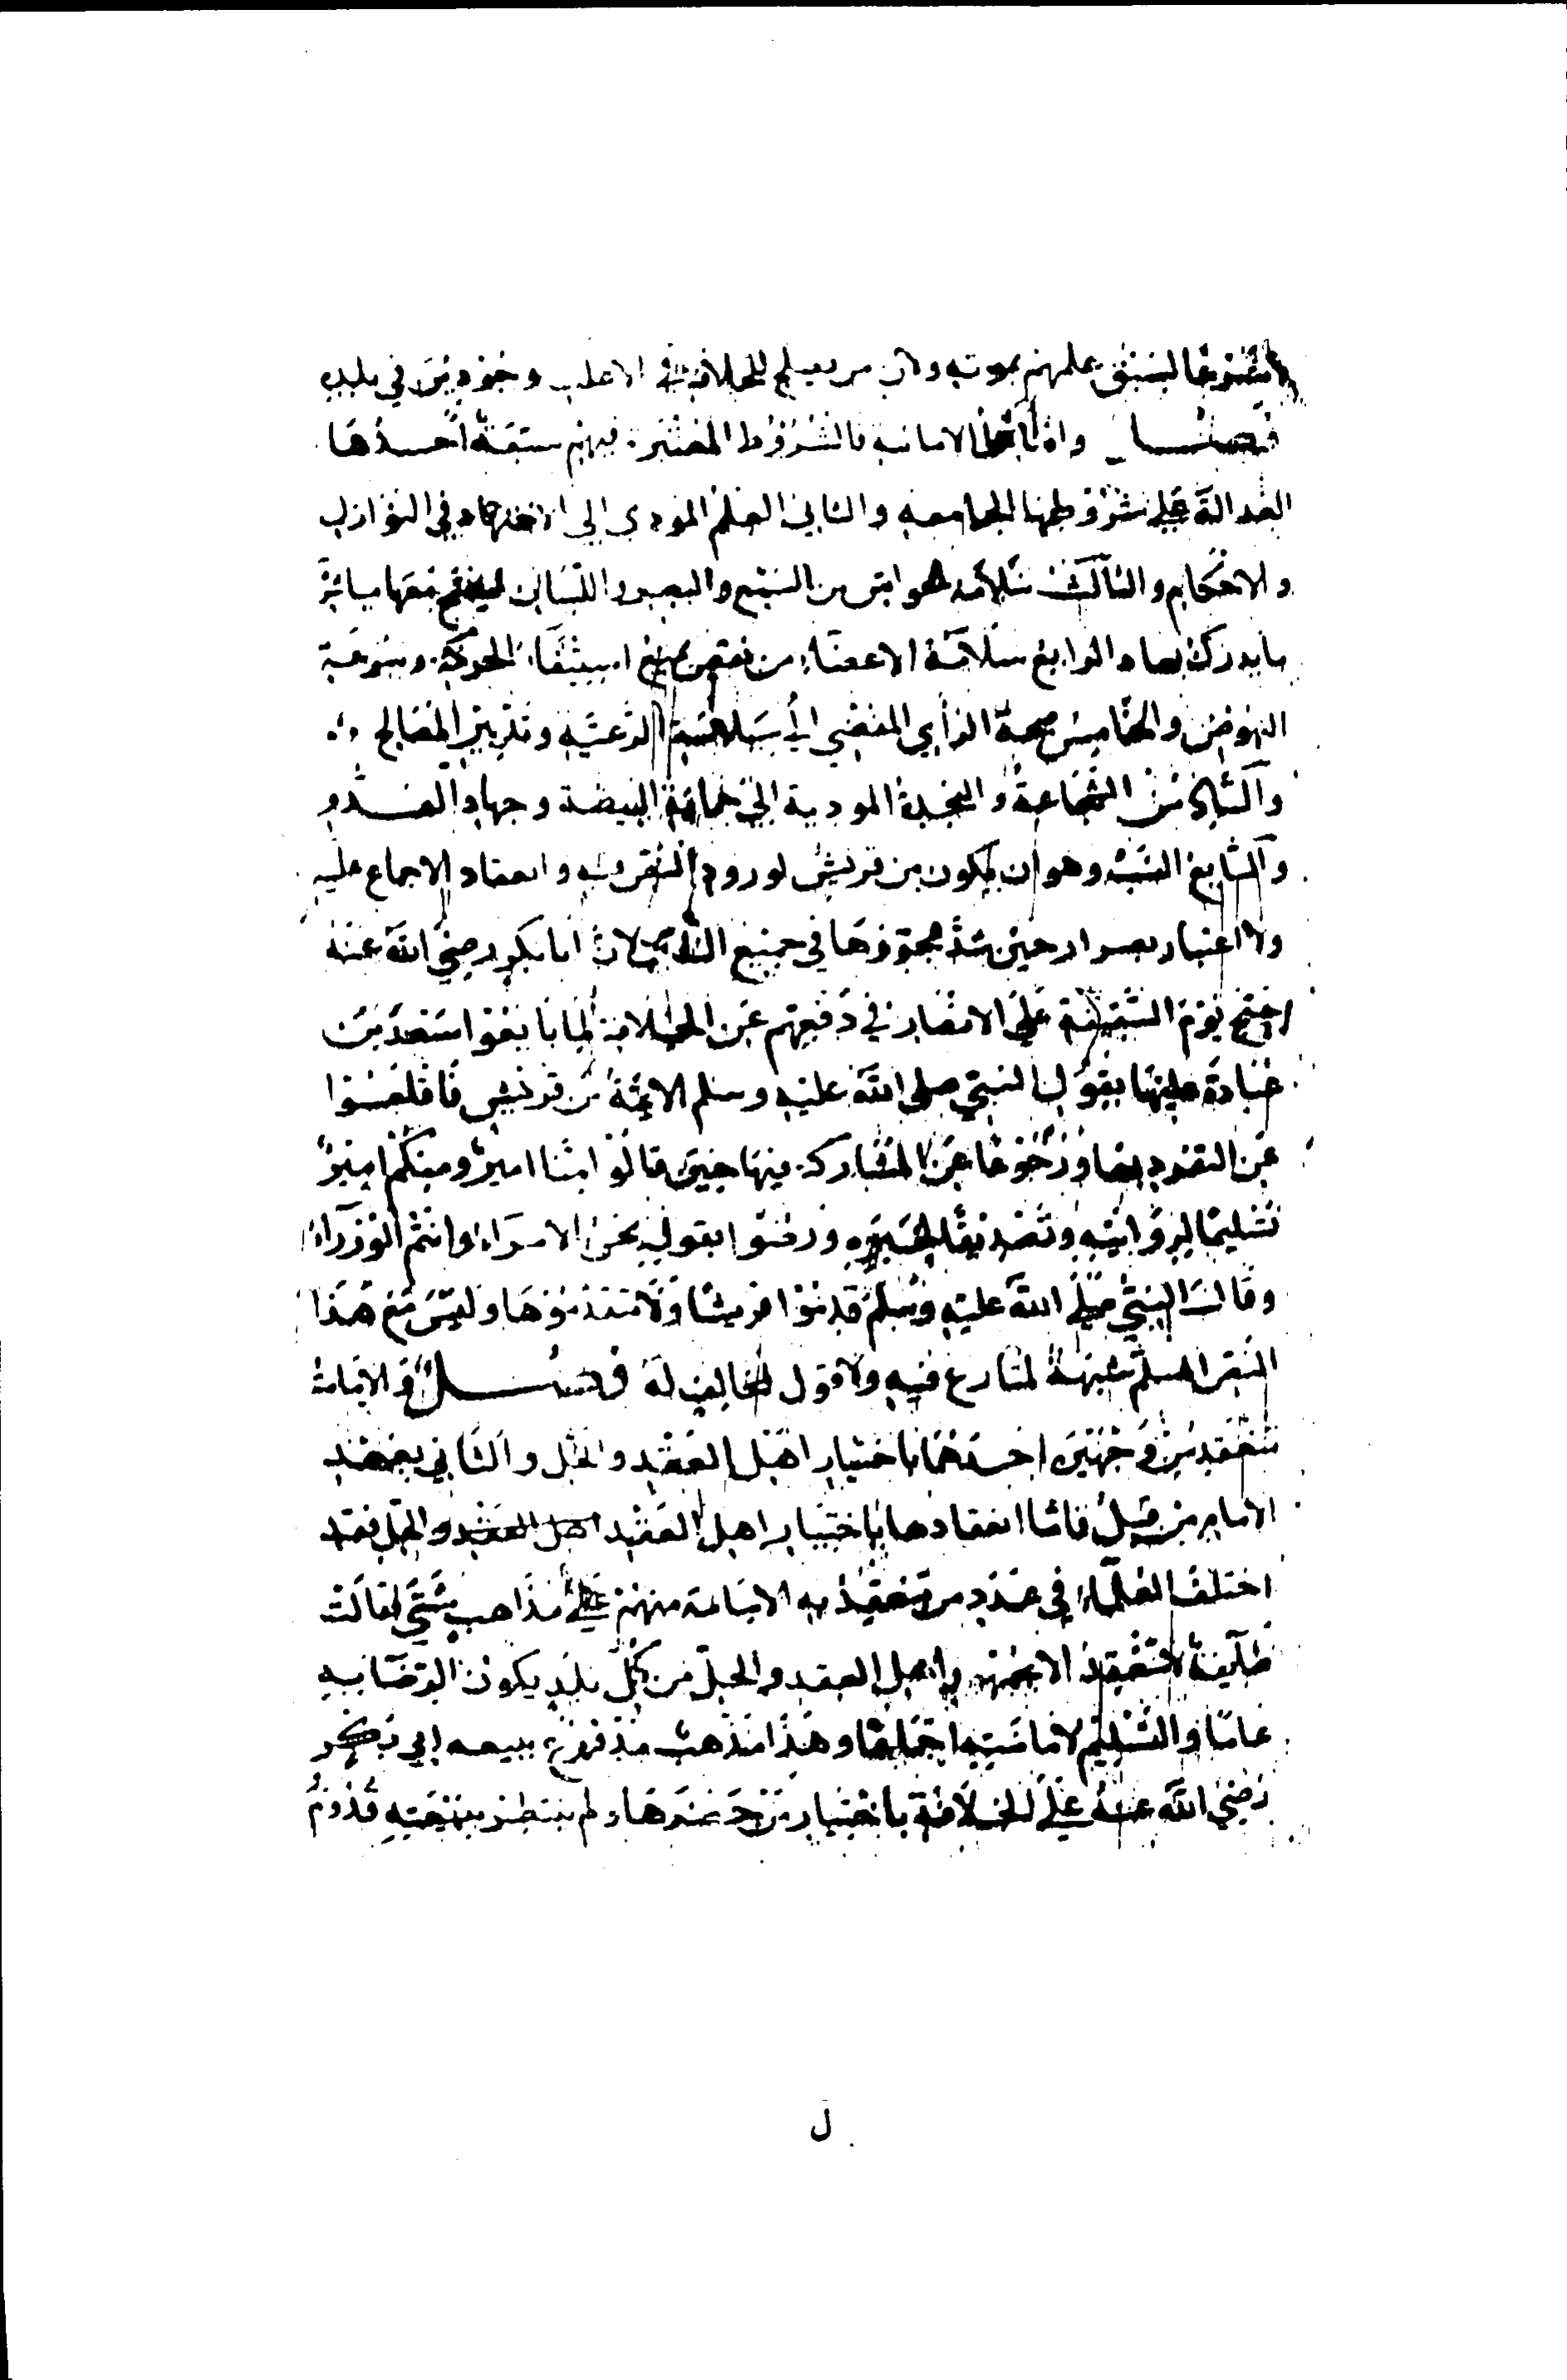 لا شرعا لسبق علمهم بموته ولان من يصلح للخلافة في الاغلب موجودين في بلده
فصل واما اهل الامامة فالشروط المعتبرة فيهم سبعة احدها
العدالة على شروطها الجامعه والثاني العلم المودي الى الاجتهاد في النوازل
والاحكام والثالث سلامة الحواس من السمع والبصر واللسان ليصح معها مباشرة
ما يدرك بها والرابع سلامة الاعضاء من نقص يمنع استيفاء الحركة وسرعة
النهوض والخامس صحة الرأي المفضي الى سياسة الرعية وتدبير المصالح
والسادس الشجاعة والنجدة المودية الى حماية البيضة وجهاد العدو
والسابع النسب وهو ان يكون من قريش لورود النص فيه وانعقاد الاجماع عليه
ولا اعتبار بضرار حين شذ فجوزها في جميع الناس لان ابا بكر رضي الله عنه
احتج يوم السقيفة على الانصار في دفعهم عن الخلافة لما بايعوا سعد بن
عبادة عليها بقول النبي صلى الله عليه وسلم الائمة من قريش فاقلعوا
عن التفرد بها ورجعوا عن المشاركة فيها حين قالوا منا امير ومنكم امير
تسليما لروايته وتصديقا لخبره ورضوا بقوله نحن الامراء وانتم الوزراء
وقال النبي صلى الله عليه وسلم قدموا قريشا ولا تتقدموها وليس مع هذا
النص المسلم شبهة لمنازع فيه ولا قول لمخالف له فصل والامامة
تنعقد من وجهين احدهما باختيار اهل العقد والحل والثاني بعهد
الامام من قبل فاما انعقادها باختيار اهل العقد اهل العقد والحل فقد
اختلف العلماء في عدد من تنعقد به الامامة منهم على مذاهب شتى فقالت
طائفة لا تنعقد الا بجمهور اهل العقد والحل من كل بلد يكون الرضا به
عاما والتسليم لامامته اجماعا وهذا مذهب مدفوع ببيعه ابي بكر
رضي الله عنه على الخلافة باختيار من حضرها ولم ينتظر ببيعته قدوم
ل